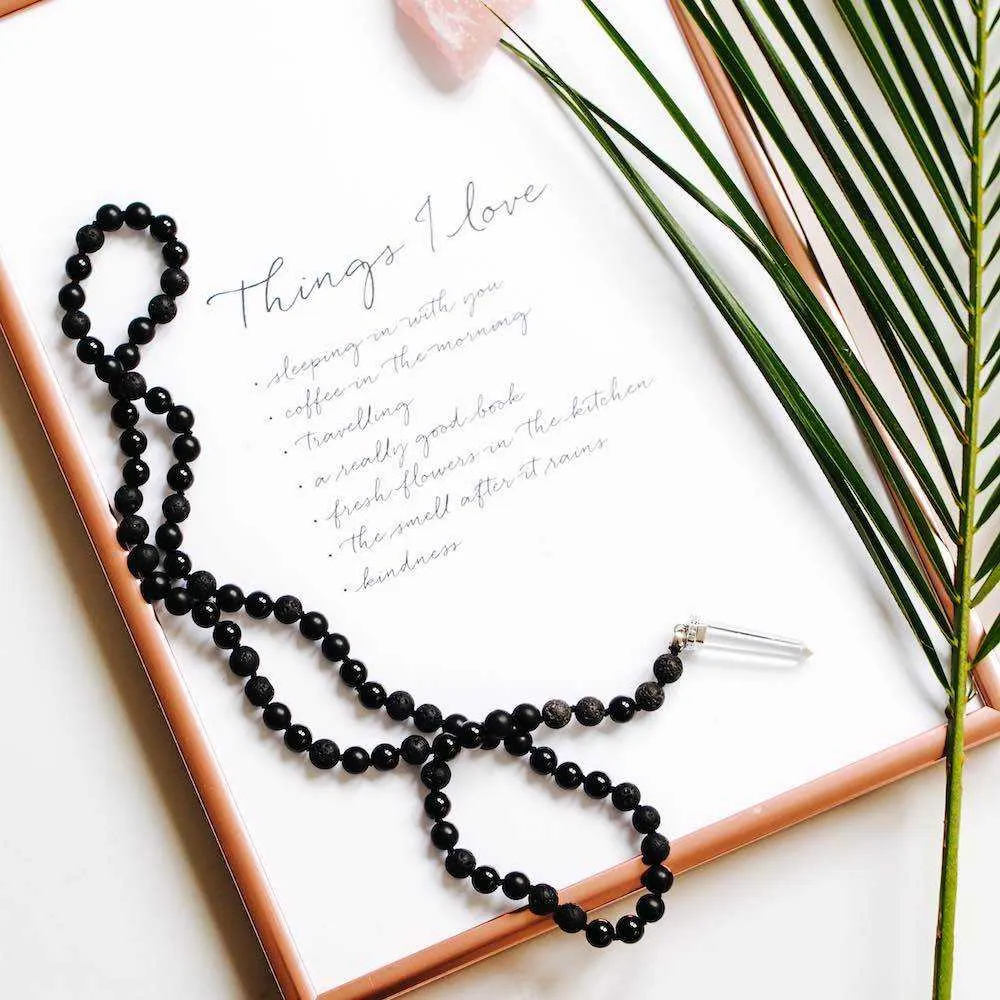 Things I love
· sleeping in with you
· coffee in the morning
· travelling
· a really good book
· fresh flowers in the kitchen
· the smell after it rains
· kindness